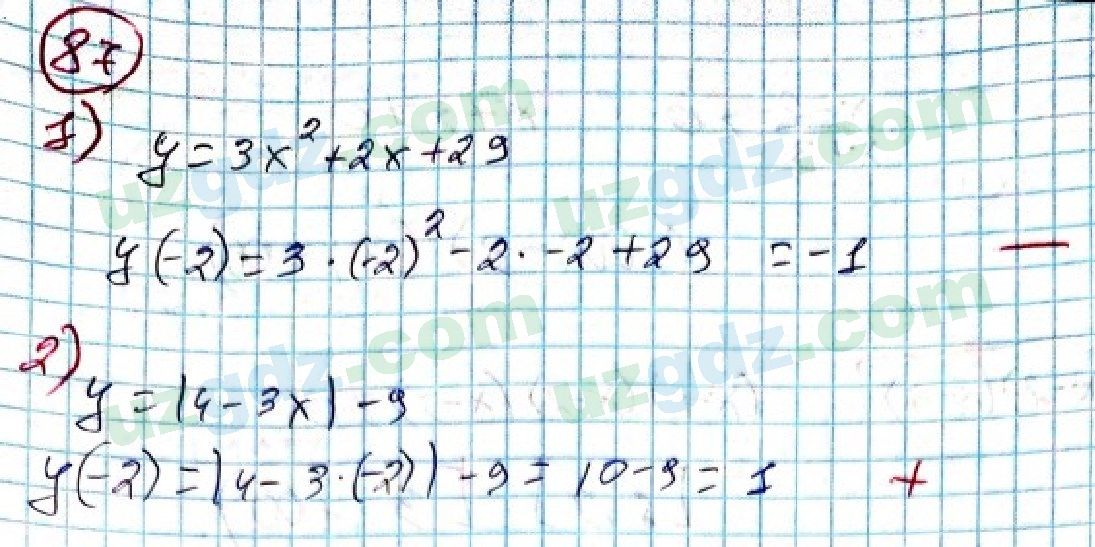 87
1) y = 3x² + 2x + 29
y(-2) = 3 · (-2)² - 2 · -2 + 29 = -1 —
2) y = |4 - 3x| - 9
y(-2) = |4 - 3 · (-2)| - 9 = 10 - 9 = 1 +
uzgdz.com
uzgdz.com
uzgdz.com
uzgdz.com